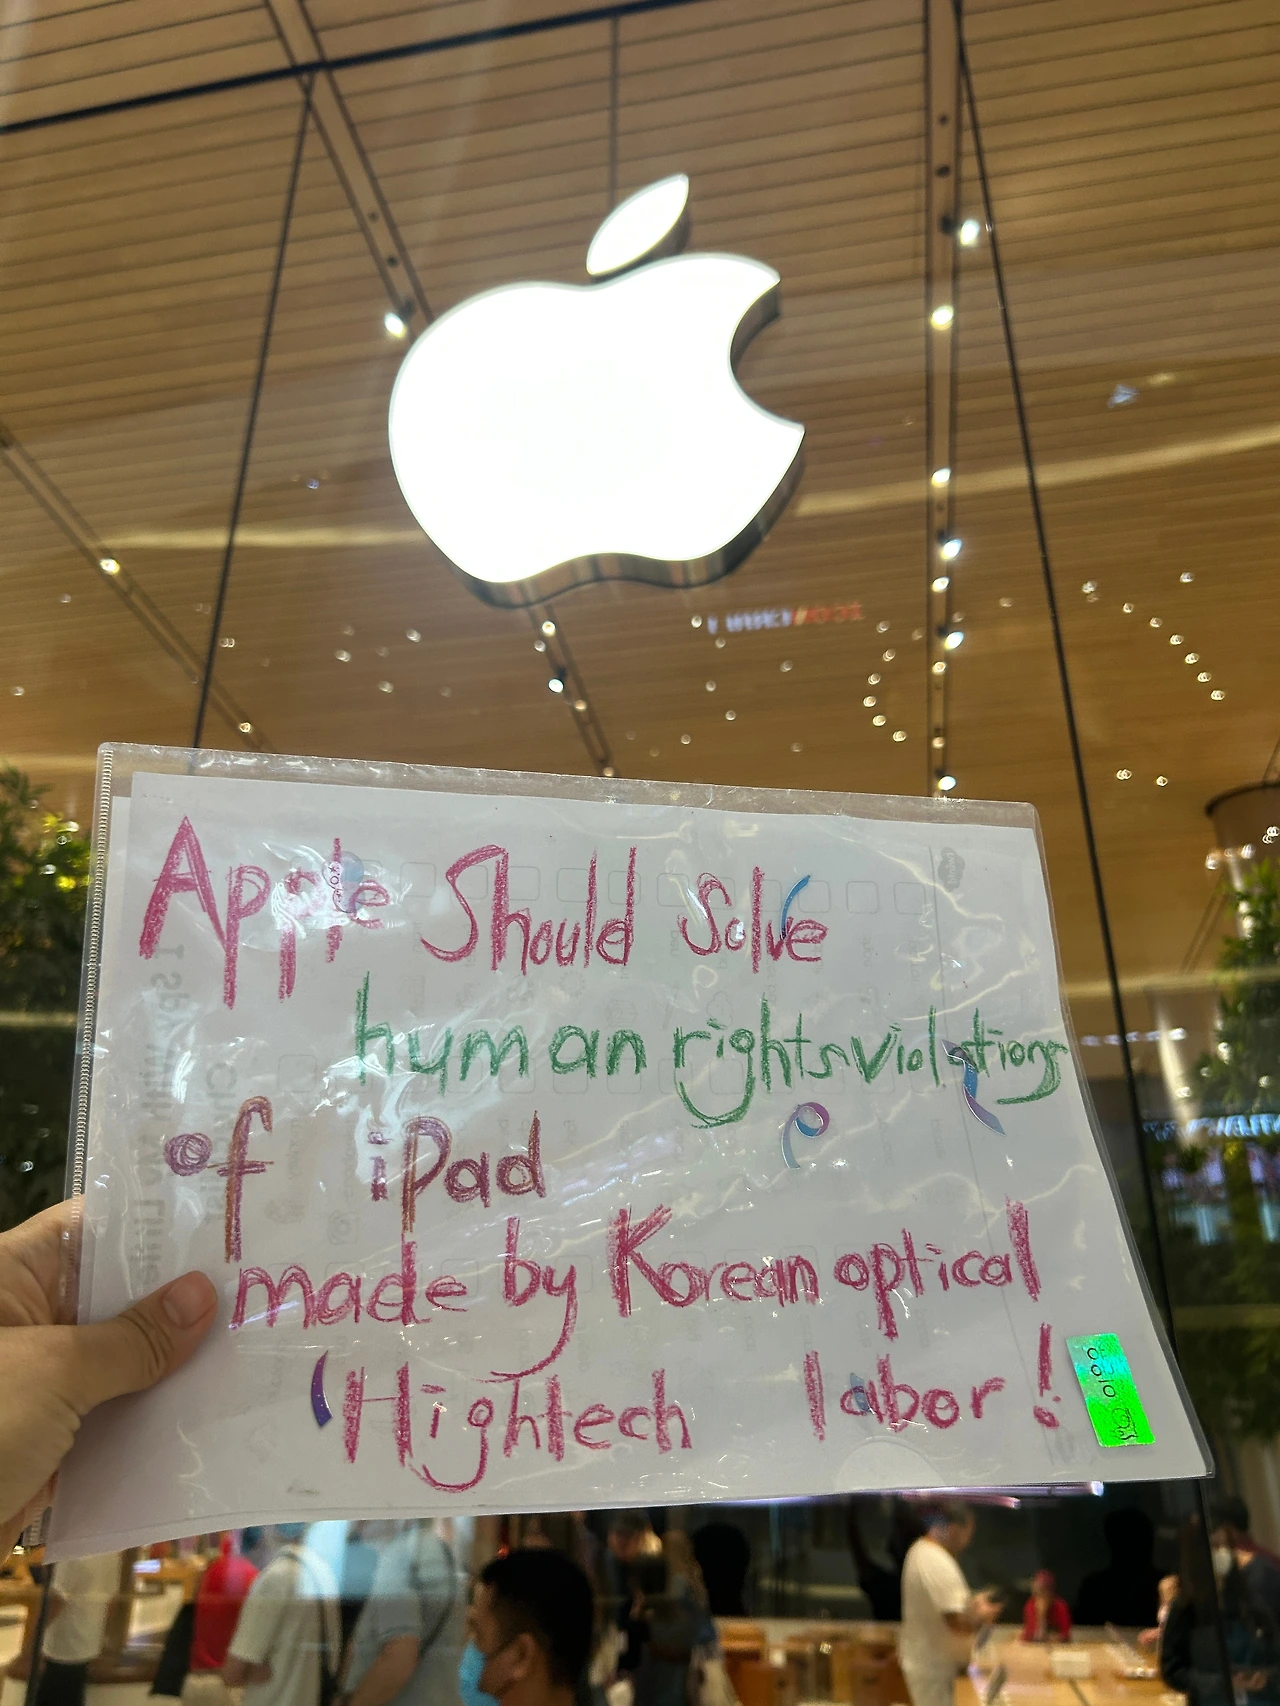 Apple Should Solve
human rights violations
of iPad
made by Korean optical
Hightech labor!